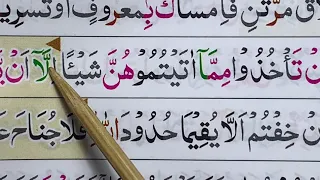 مَّرَّتٰنِ فَاِمْسَاكٌۢ بِمَعْرُوْفٍ اَوْ تَسْرِيْحٌ
تَاْخُذُوْا مِمَّاۤ اٰتَيْتُمُوْهُنَّ شَيْـًٔا اِلَّاۤ اَنْ
خِفْتُمْ اَلَّا يُقِيْمَا حُدُوْدَ اللّٰهِ فَلَا جُنَاحَ